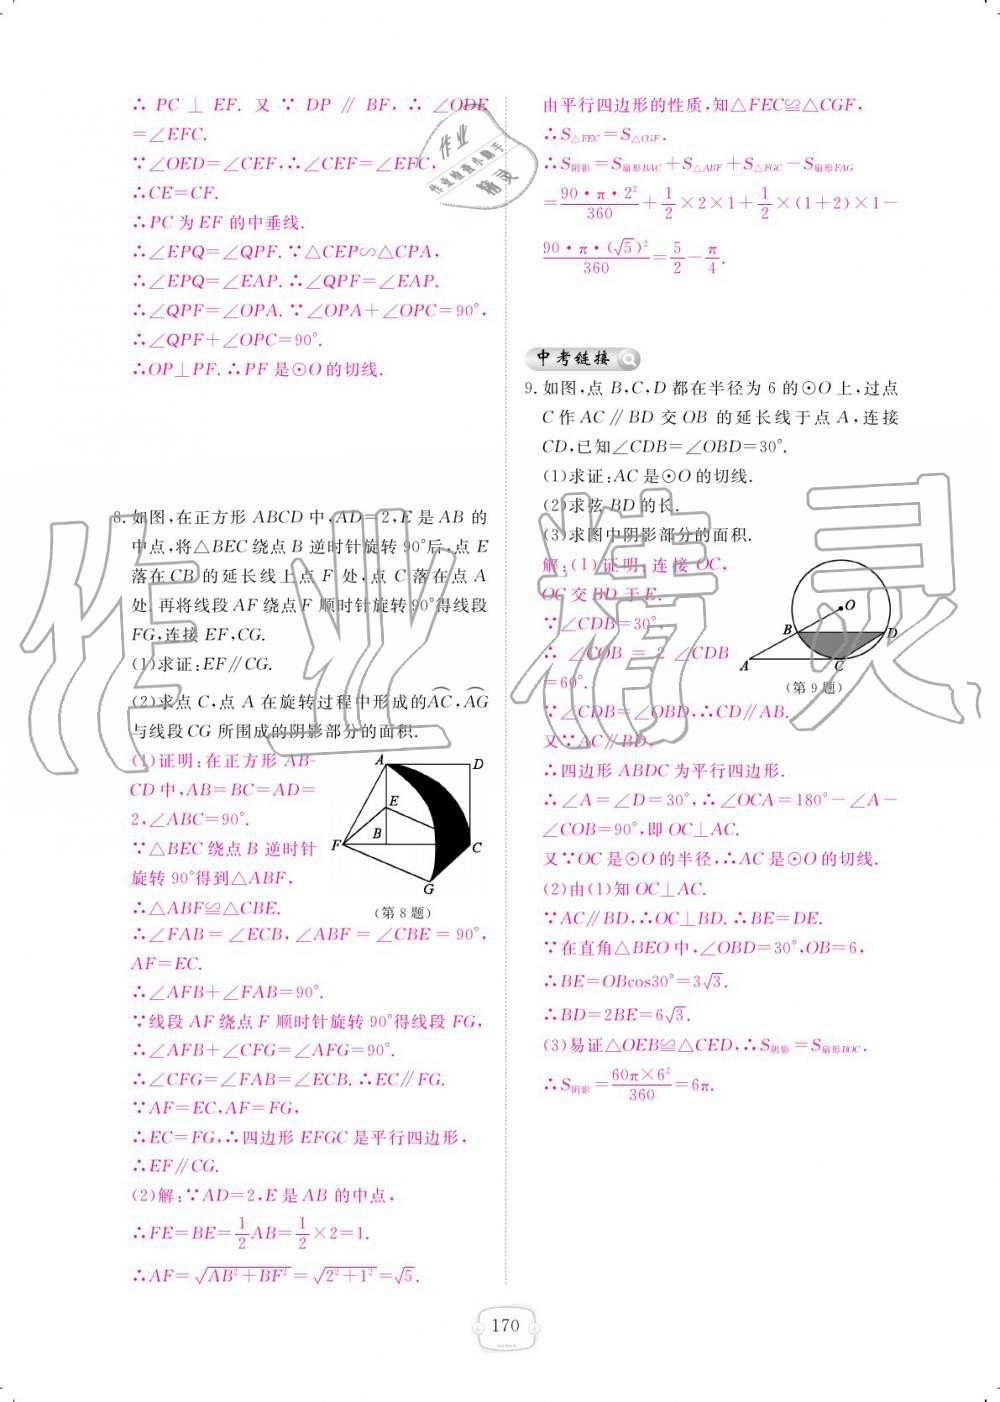 ∴ PC ⊥ EF. 又 ∵ DP ∥ BF, ∴ ∠ODE
=∠EFC.
∵∠OED=∠CEF,∴∠CEF=∠EFC,
∴CE=CF.
∴PC为EF的中垂线.
∴∠EPQ=∠QPF.∵△CEP∽△CPA,
∴∠EPQ=∠EAP.∴∠QPF=∠EAP.
∴∠QPF=∠OPA.∵∠OPA+∠OPC=90°,
∴∠QPF+∠OPC=90°.
∴OP⊥PF.∴PF是⊙O的切线.
8.如图,在正方形ABCD中,AD=2,E是AB的
中点,将△BEC绕点B逆时针旋转90°后,点E
落在CB的延长线上点F处,点C落在点A
处.再将线段AF绕点F顺时针旋转90°得线段
FG,连接EF,CG.
(1)求证:EF∥CG.
(2)求点C,点A在旋转过程中形成的AC⌒,AG⌒
与线段CG所围成的阴影部分的面积.
(1)证明:在正方形AB-
CD中,AB=BC=AD=
2,∠ABC=90°.
∵△BEC绕点B逆时针
旋转90°得到△ABF,
∴△ABF≌△CBE.
A D E B F C G
(第8题)
∴∠FAB=∠ECB,∠ABF=∠CBE=90°,
AF=EC.
∴∠AFB+∠FAB=90°.
∵线段AF绕点F顺时针旋转90°得线段FG,
∴∠AFB+∠CFG=∠AFG=90°.
∴∠CFG=∠FAB=∠ECB.∴EC∥FG.
∵AF=EC,AF=FG,
∴EC=FG,∴四边形EFGC是平行四边形,
∴EF∥CG.
(2)解:∵AD=2,E是AB的中点,
∴FE=BE=1/2AB=1/2×2=1.
∴AF=√(AB²+BF²)=√(2²+1²)=√5.
由平行四边形的性质,知△FEC≌△CGF,
∴S△FEC=S△CGF.
∴S阴影=S扇形BAC+S△ABF+S△FGC-S扇形FAG
=90·π·2²/360+1/2×2×1+1/2×(1+2)×1-
90·π·(√5)²/360=5/2-π/4.
中考链接
9.如图,点B,C,D都在半径为6的⊙O上,过点
C作AC∥BD交OB的延长线于点A,连接
CD,已知∠CDB=∠OBD=30°.
(1)求证:AC是⊙O的切线.
(2)求弦BD的长.
(3)求图中阴影部分的面积.
解:(1)证明:连接OC,
OC交BD于E.
∵∠CDB=30°,
∴ ∠COB = 2 ∠CDB
=60°.
O B D A C
(第9题)
∵∠CDB=∠OBD,∴CD∥AB.
又∵AC∥BD,
∴四边形ABDC为平行四边形.
∴∠A=∠D=30°,∴∠OCA=180°-∠A-
∠COB=90°,即OC⊥AC.
又∵OC是⊙O的半径,∴AC是⊙O的切线.
(2)由(1)知OC⊥AC.
∵AC∥BD,∴OC⊥BD.∴BE=DE.
∵在直角△BEO中,∠OBD=30°,OB=6,
∴BE=OBcos30°=3√3.
∴BD=2BE=6√3.
(3)易证△OEB≌△CED,∴S阴影=S扇形BOC.
∴S阴影=60π×6²/360=6π.
170
作业
作业检查小助手
精灵
作业精灵